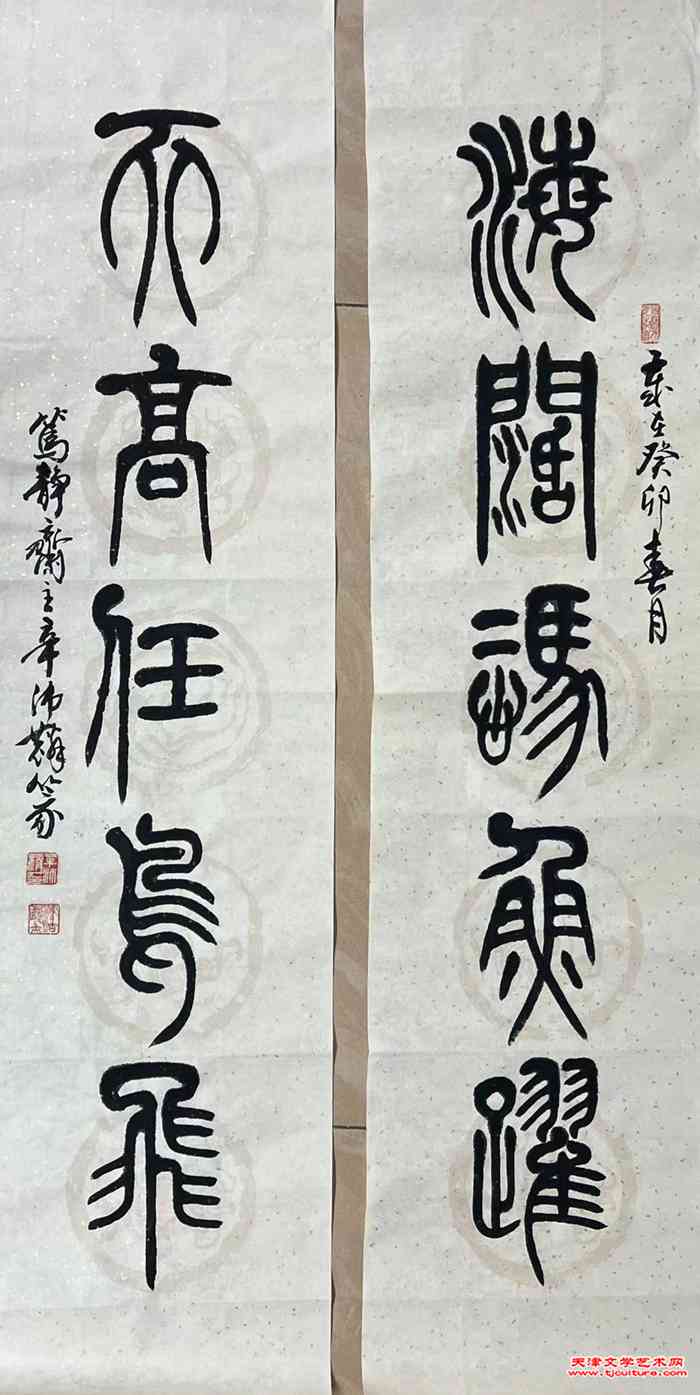 海闊憑魚躍
歲在癸卯春月
天高任鳥飛
篤靜齋主辛沛篆
天津文学艺术网
www.tjculture.com